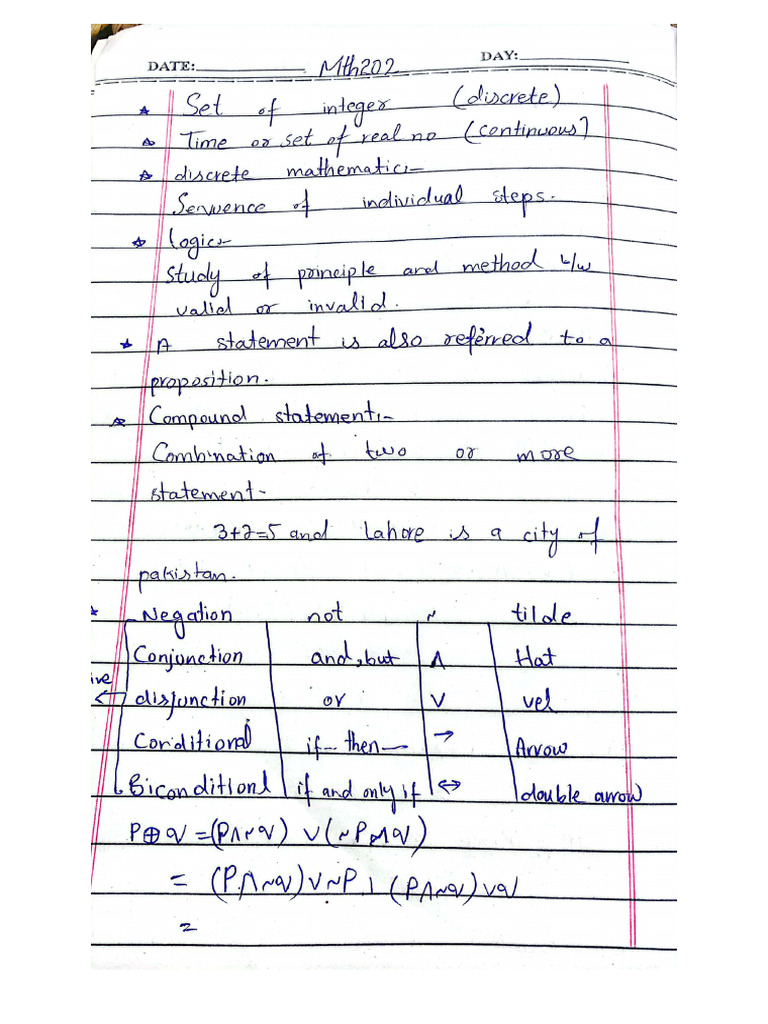 DATE: Mth202 DAY:
Set of integer (discrete)
Time or set of real no (continuous]
discrete mathematic:-
Sequence of individual steps.
logic:-
Study of principle and method b/w
valid or invalid.
A statement is also referred to a
proposition.
Compound statement:-
Combination of two or more
statement-
3+2=5 and Lahore is a city of
pakistan.
Negation not ~ tilde
Conjunction and, but ∧ Hat
ive ← disjunction or ∨ vel
Conditional if— then— → Arrow
Biconditionl if and only if ↔ double arrow
P⊕q = (P∧~q) ∨ (~P∧q)
= (P∧~q)∨~P ∧ (P∧~q)∨q
=